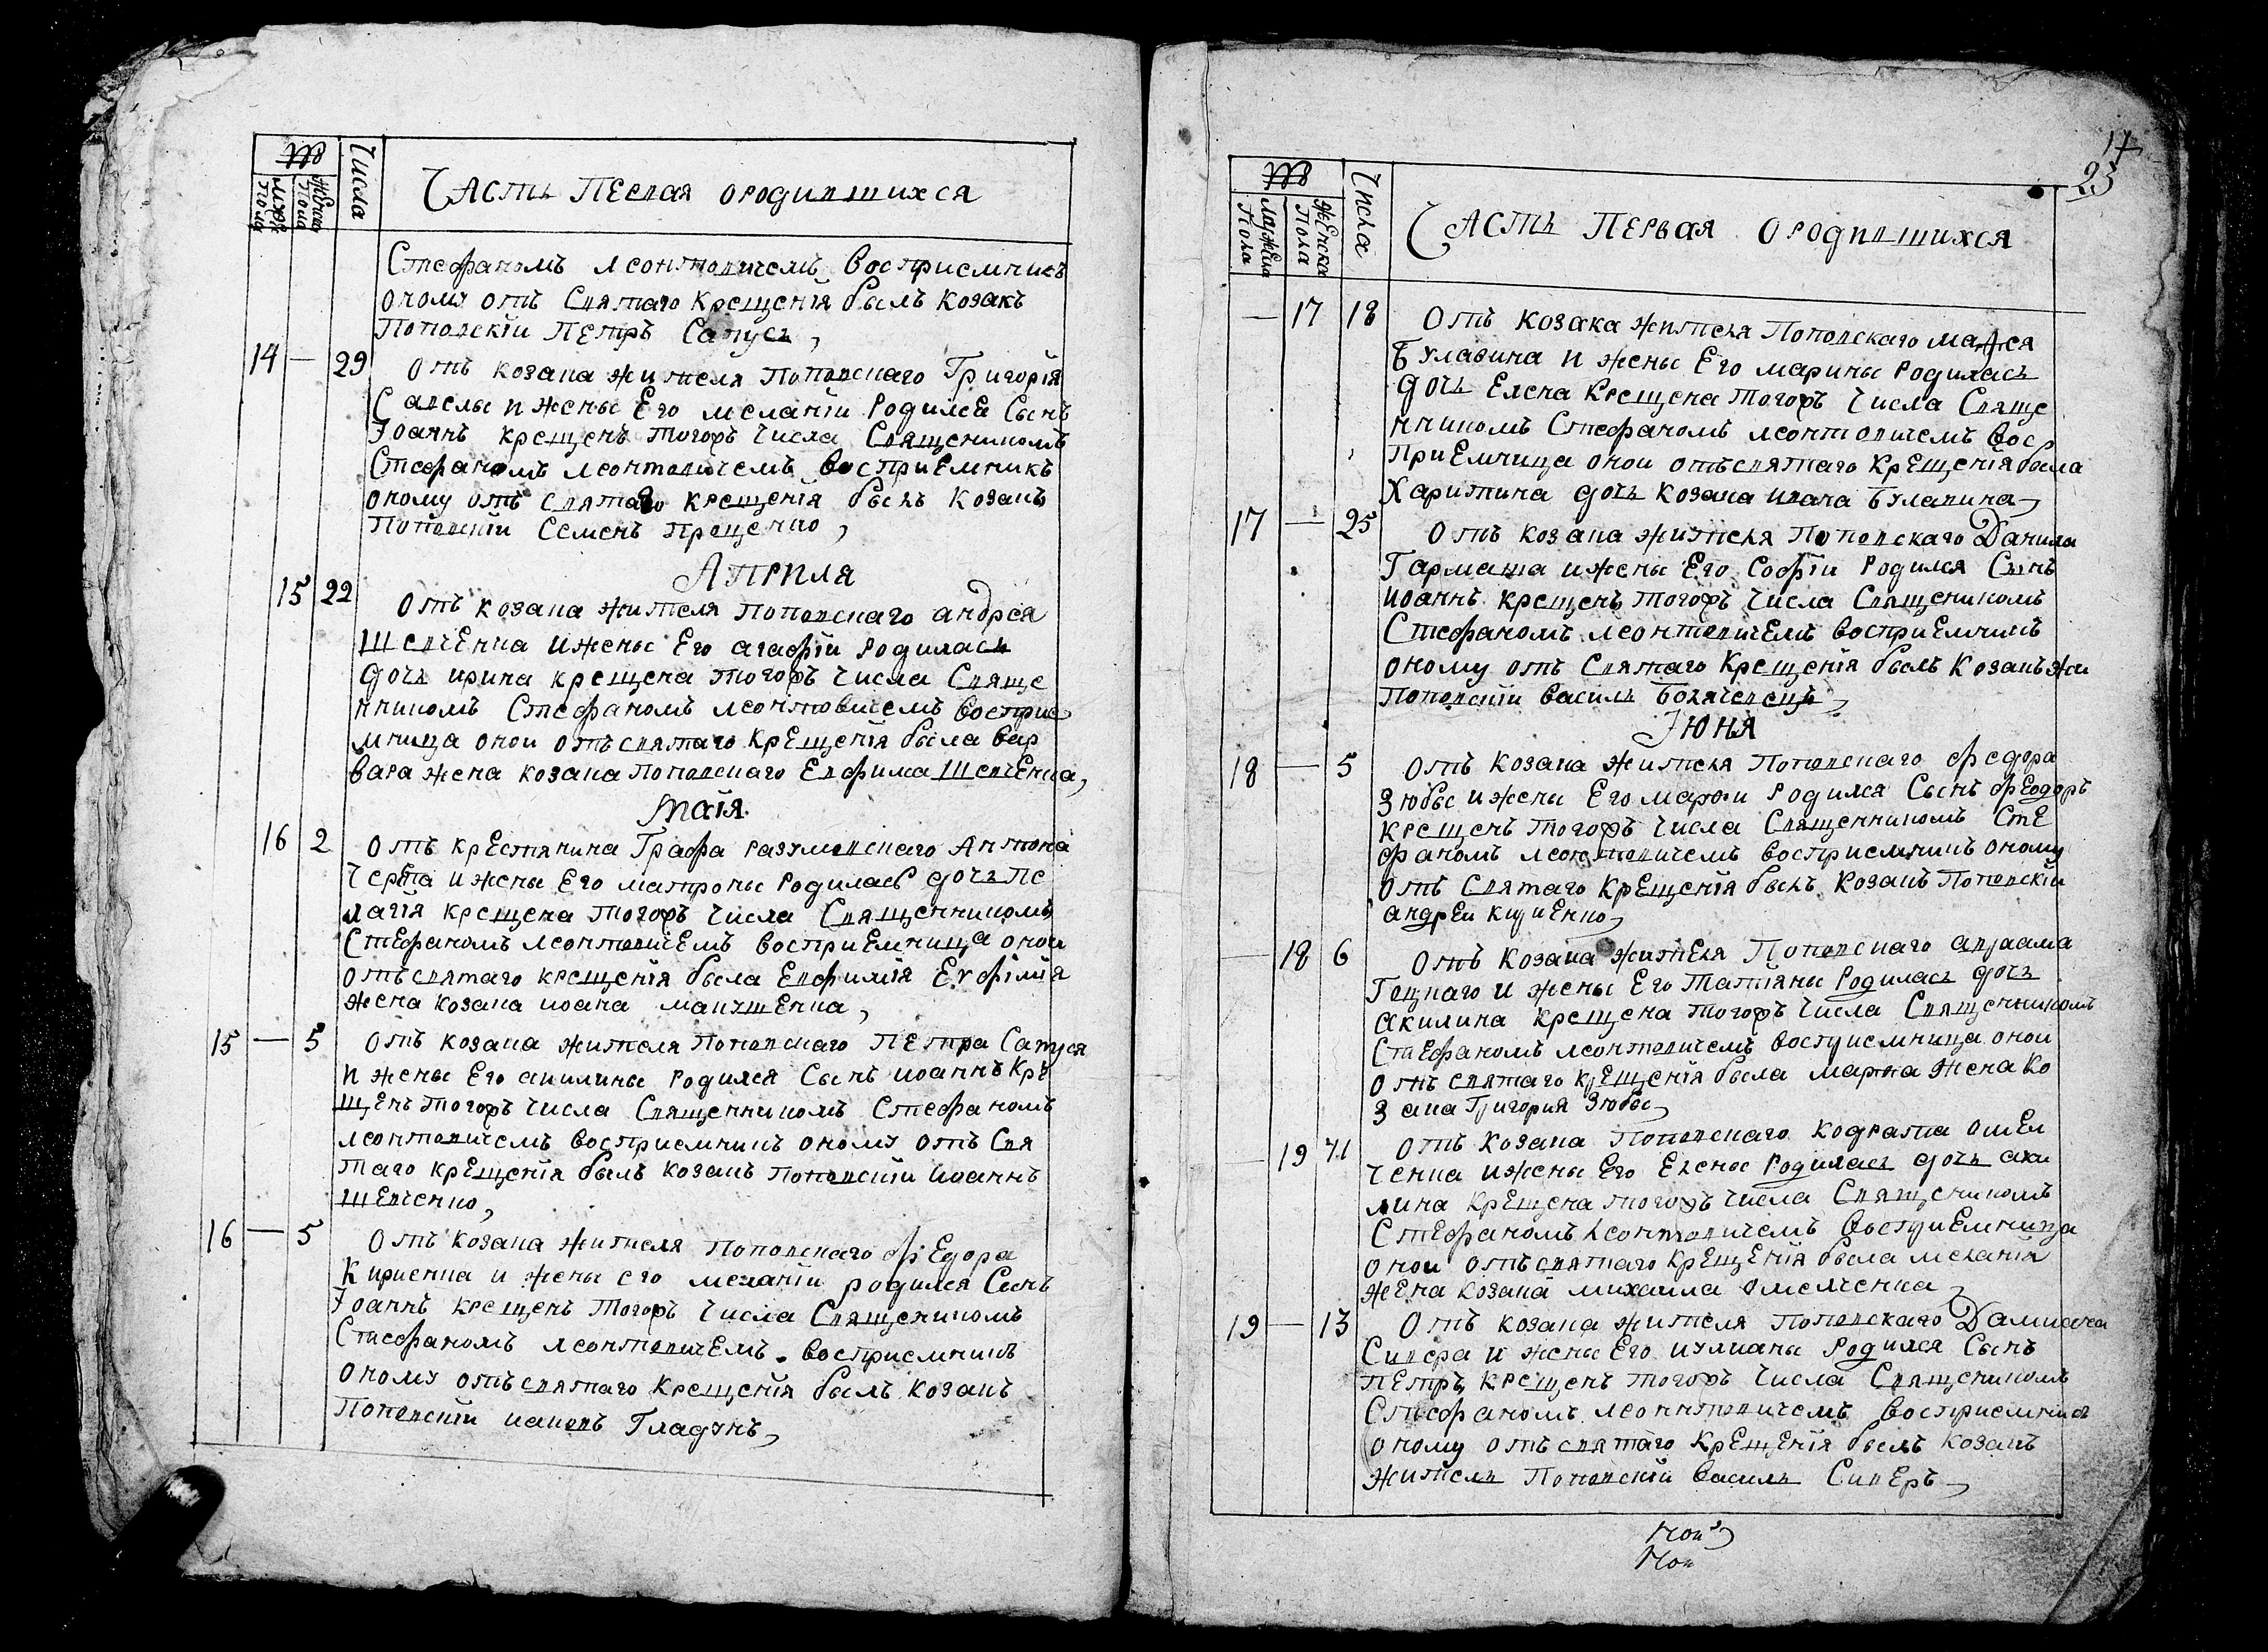 №
Мужеска Пола
Женска Пола
Числа
Часть Первая ородившихся
Стефаномъ леонтовичемъ восприемникъ
оному отъ Святаго Крещенія былъ козакъ
Поповскіи Петръ Сапусь,
14 — 29 Отъ козака жителя Поповскаго Григорія
Савелы и жены Его меланіи Родился Сынъ
Іоаннъ крещенъ тогожъ числа Священикомъ
Стефаномъ леонтовичемъ восприемникъ
оному отъ святаго крещенія былъ козакъ
Поповскіи Семенъ Прощенко,
Априля
15 22 Отъ козака жителя поповскаго андрея
Шевченка и жены Его агафіи Родилась
дочь ирина крещена тогожъ числа Свяще
нникомъ Стефаномъ леонтовичемъ восприе
мница онои отъ святаго Крещенія была вар
вара жена козака Поповскаго Евфима Шевченка,
Маія
16 2 Отъ крестянина Графа разумовскаго Антона
Черта и жены Его матроны Родилась дочь пе
лагія крещена тогожъ числа Священникомъ
Стефаномъ леонтовичемъ восприемница онои
отъ святаго крещенія была Евфимія Еуфімія
жена козака иоана макушенка,
15 — 5 Отъ козака жителя Поповскаго Петра Сапуся
и жены Его акилины Родился Сынъ иоаннъ Кре
щенъ тогожъ числа Священникомъ Стефаномъ
леонтовичемъ восприемникъ оному отъ Свя
таго крещенія былъ козакъ поповскіи Иоаннъ
Шевченко,
16 — 5 Отъ козака жителя Поповскаго Федора
Кириенка и жены его меланіи родился Сынъ
Іоаннъ крещенъ тогожъ числа Священикомъ
Стефаномъ леонтовичемъ. восприемникъ
оному отъ святаго Крещенія былъ козакъ
Поповскіи иаковъ Гладунъ,
17
23
№
Мужеска Пола
Женска Пола
Числа
Часть Первая ородившихся
— 17 18 Отъ козака жителя Поповскаго
Булавина и жены Его марины Родилась
дочь Елена Крещена тогожъ числа Свяще
нникомъ Стефаномъ леонтовичемъ вос
приемница онои отъ святаго крещенія была
Харитина дочь козака ивана Булавина,
17 — 25 Отъ козака жителя Поповскаго Данила
Гармаша и жены Его Софіи Родился Сынъ
Иоаннъ крещенъ тогожъ числа Священикомъ
Стефаномъ леонтовичемъ восприемникъ
оному отъ Святаго Крещенія былъ козакъ жи
Поповскіи василь
Іюня
18 — 5 Отъ козака жителя Поповскаго федора
Зюбы и жены Его марфи Родился Сынъ феодоръ
крещенъ тогожъ числа Священникомъ Сте
фаномъ леонтовичемъ восприемникъ оному
отъ Святаго Крещенія былъ козакъ Поповскіи
андреи
— 18 6 Отъ козака жителя Поповскаго авраама
Гоцкаго и жены Его Татіяны Родилась дочь
акилина крещена тогожъ числа Священникомъ
Стефаномъ леонтовичемъ восприемница онои
отъ святаго крещенія была марфа жена ко
зака Григория Зюбы,
— 19 Отъ козака Поповскаго кодрата омел
ченка и жены Его Елены Родилась дочь аки
лина крещена тогожъ числа Священикомъ
Стефаномъ леонтовичемъ восприемница
онои отъ святаго крещенія была меланія
жена козака михаила омелченка,
19 — 13 Отъ козака жителя поповскаго Дамиана
Сивера и жены Его иулианы Родился Сынъ
Петръ крещенъ тогожъ числа Священикомъ
Стефаномъ леонтовичемъ восприемникъ
оному отъ святаго крещенія былъ козакъ
житель Поповскіи василь Сиверъ,